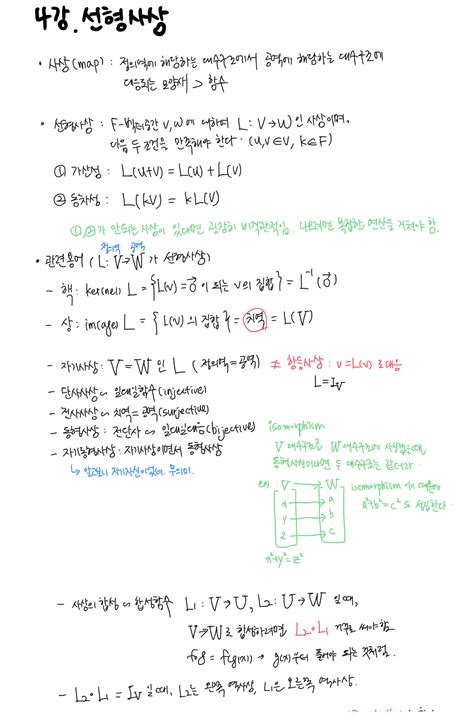 4강. 선형사상
• 사상(map) : 정의역에 해당하는 대수구조에서 공역에 해당하는 대수구조에
대응되는 모양새 > 함수
• 선형사상 : F-벡터공간 V, W에 대하여 L : V→W인 사상이며,
다음 두 조건을 만족해야 한다. (u,v∈V, k∈F)
① 가산성 : L(u+v) = L(u)+L(v)
② 동차성 : L(kv) = kL(v)
①,②가 안되는 사상이 있다면 굉장히 비직관적임. 나타내려면 복잡한 연산을 거쳐야 함.
정의역 공역
• 관련용어 (L : V→W가 선형사상)
- 핵 : ker(nel) L = {L(v)=0⃗ 이 되는 v의 집합} = L⁻¹(0⃗)
- 상 : im(age) L = {L(v)의 집합} = 치역 = L(V)
- 자기사상 : V=W인 L (정의역=공역) ≠ 항등사상 : v=L(v)로 대응
L=Iv
- 단사사상 ~ 일대일함수(injective)
- 전사사상 ~ 치역=공역(surjective)
- 동형사상 : 전단사 ~ 일대일대응(bijective)
- 자기동형사상 : 자기사상이면서 동형사상
↳ 알고보니 자기자신이었더라.
isomorphism
V 대수구조를 W 대수구조에 사상했는데,
동형사상이라면 두 대수구조는 같더라.
ex) V → W
x → a
y → b
z → c
x²+y²=z²
isomorphism 이기 때문에
a²+b²=c² 도 성립한다.
- 사상의 합성 ~ 합성함수 L₁ : V→U, L₂ : U→W 일 때,
V→W로 합성하려면 L₂∘L₁ 거꾸로 써야함.
f∘g = f(g(x)) → g(x)부터 풀어야 되는 것처럼.
- L₂∘L₁ = Iv 일 때, L₂는 왼쪽 역사상, L₁은 오른쪽 역사상.